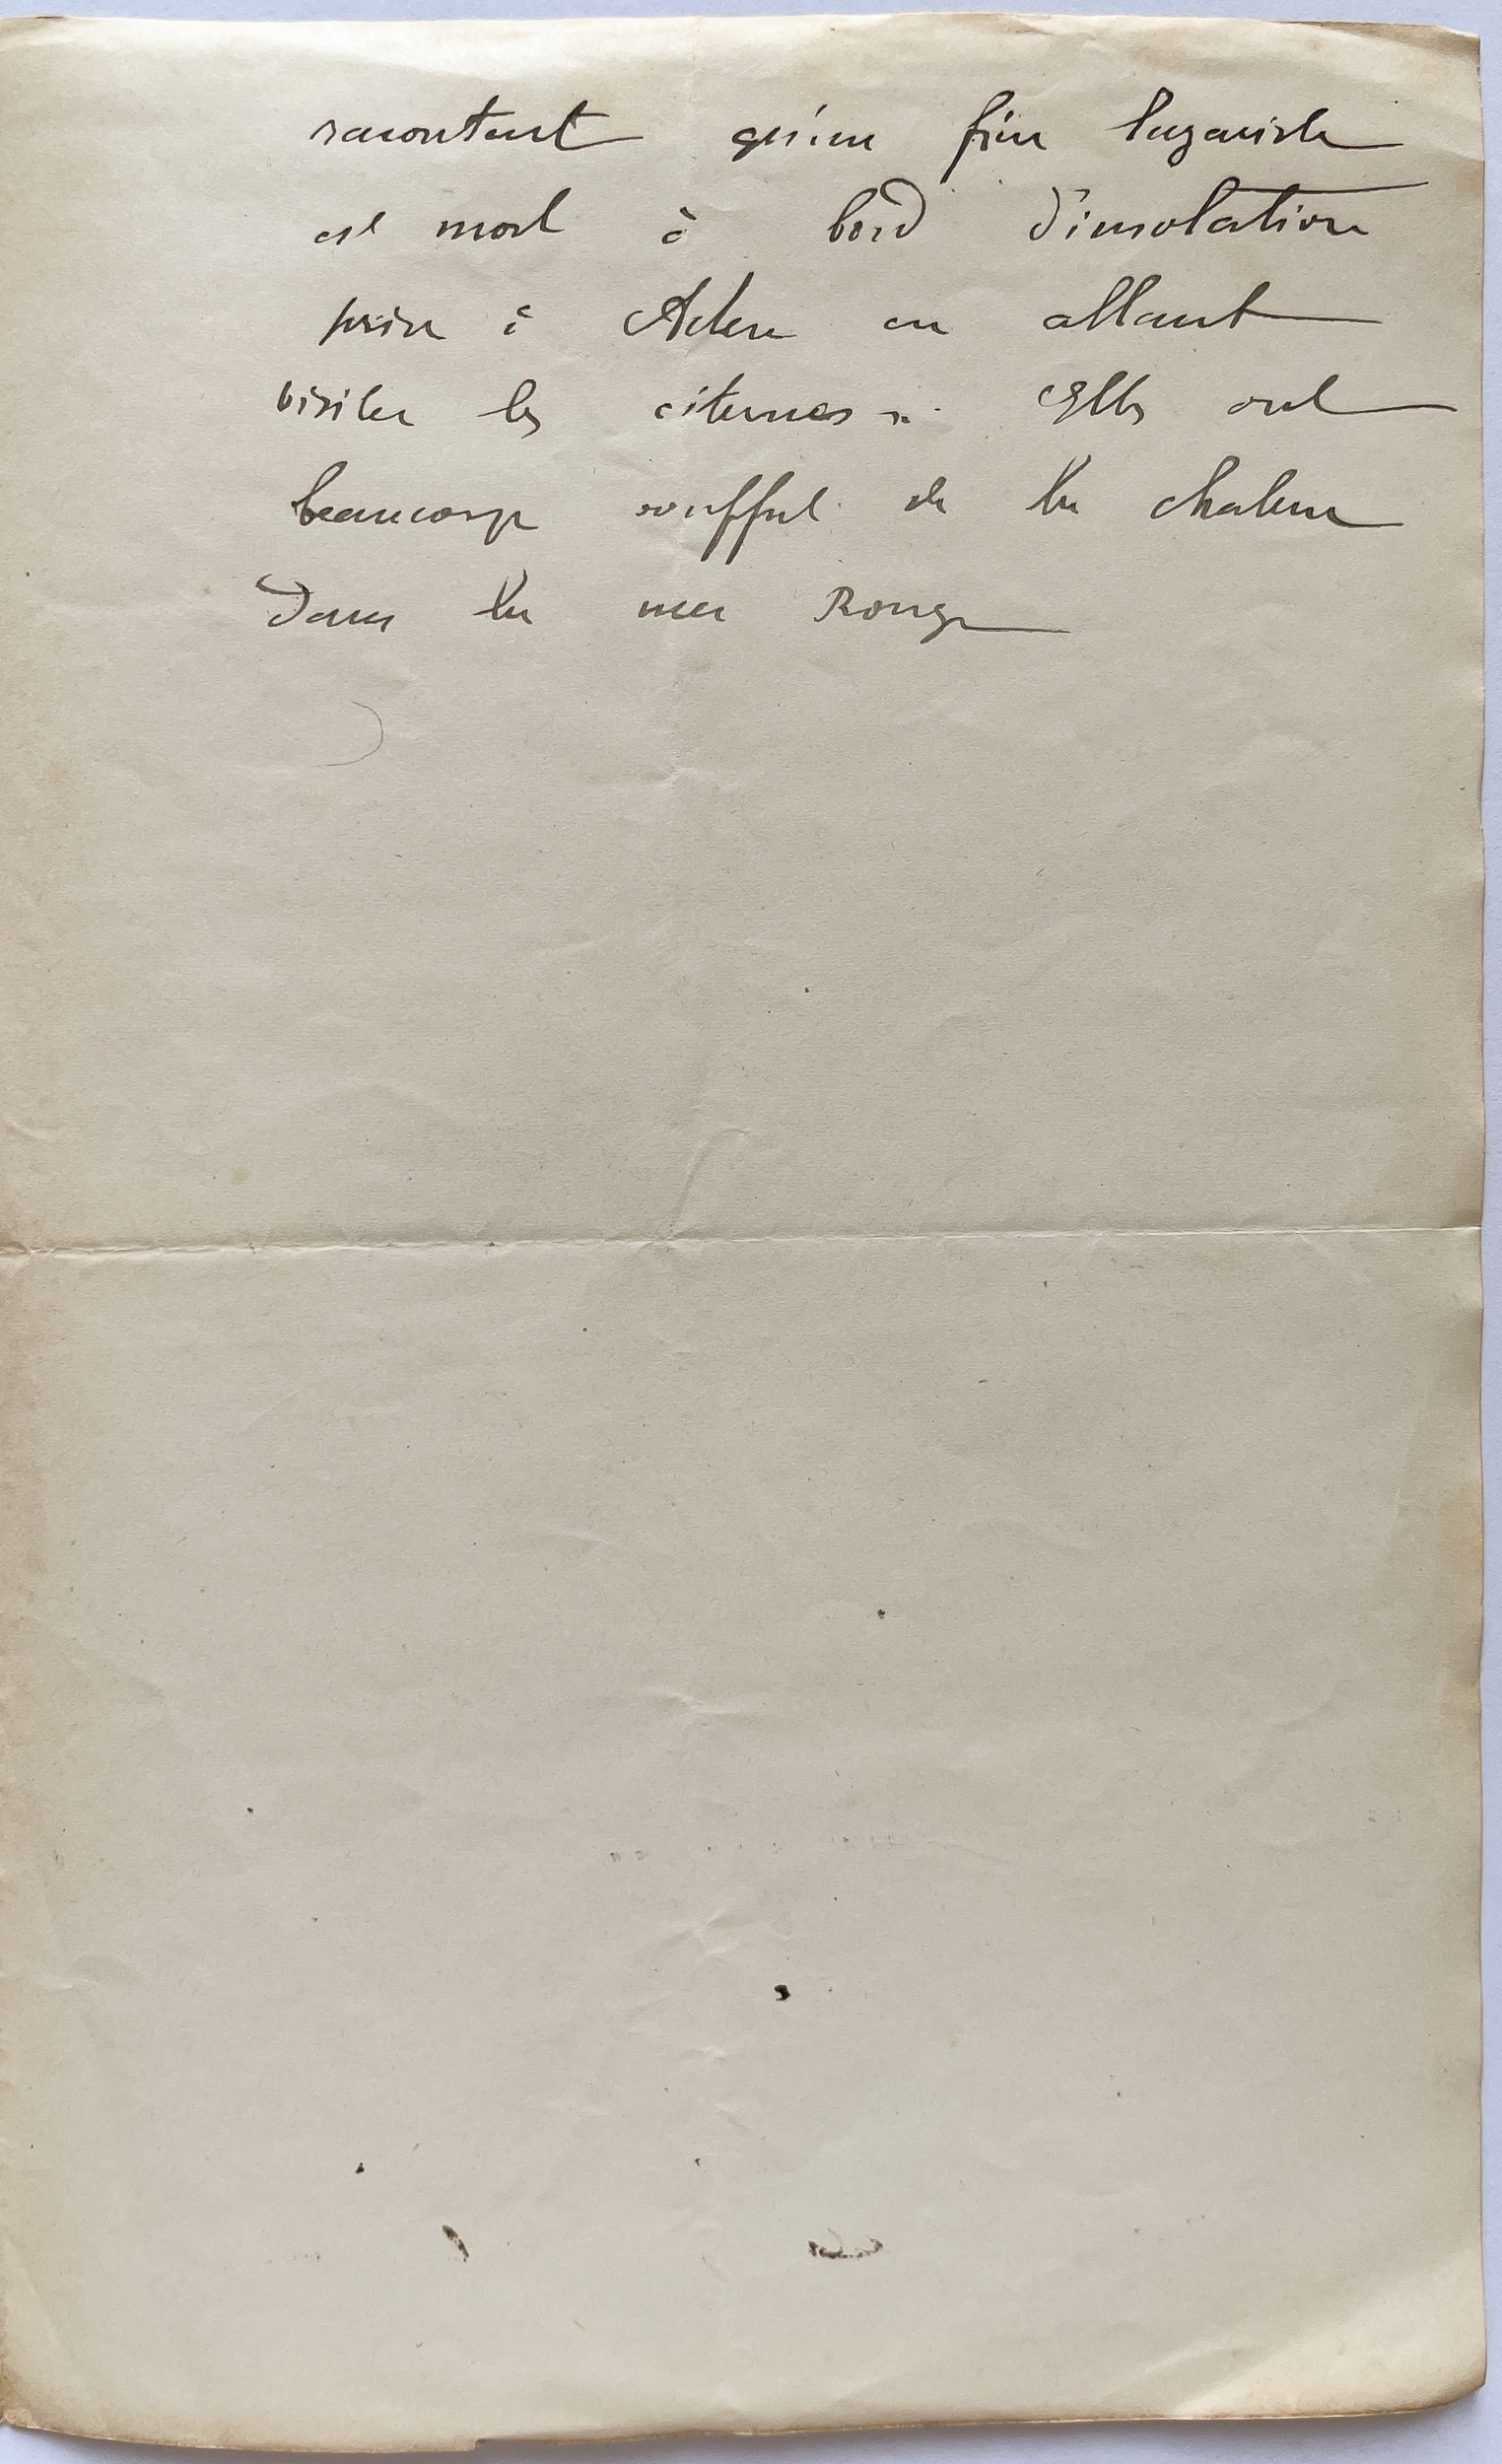 racontent qu'un frère lazariste
est mort à bord d'insolation
prise à Aden en allant
visiter les citernes. Elles ont
beaucoup souffert de la chaleur
dans la mer Rouge